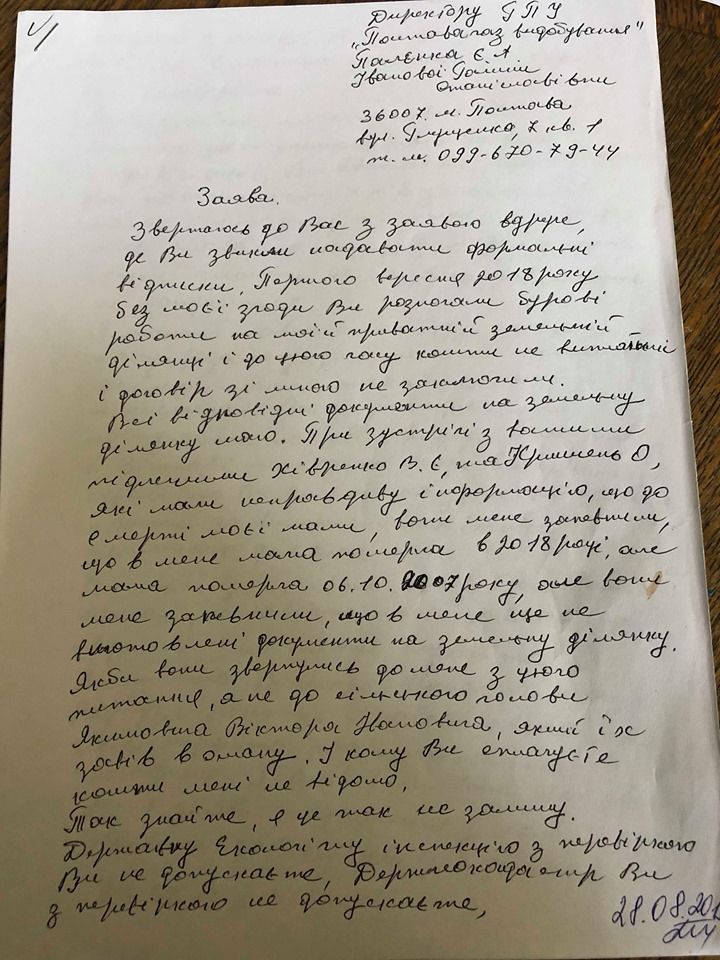 Директору ГПУ
"Полтавагазвидобування"
Палєнка Є А
Іванової Галини
Станіславівни
36007. м. Полтава
вул. Глущенко, 7 кв. 1
т. м. 099-670-79-44
Заява.
Звертаюсь до Вас з заявою вдруге,
де Ви звикли надавати формальні
відписки. Першого вересня 2018 року
без моєї згоди Ви розпочали бурові
роботи на моїй приватній земельній
ділянці і до цього часу кошти не виплатили
і договір зі мною не заключили.
Всі відповідні документи на земельну
ділянку маю. При зустрічі з вашими
підлеглими Хівренко В. Є, та О,
які мали неправдиву інформацію, що до
смерті моєї мами, вони мене запевнили,
що в мене мама померла в 2018 році, але
мама померла 06.10.2007 року, але вони
мене запевнили, що в мене ще не
виготовлені документи на земельну ділянку.
Якби вони звернулись до мене з цього
питання, а не до сільського голови
Якимовича Віктора Івановича, який їх
завів в оману. І кому Ви сплачуєте
кошти мені не відомо.
Так знайте, я це так не залишу.
Державну Екологічну інспекцію з перевіркою
Ви не допускаєте, Держгеокадастр Ви
з перевіркою не допускаєте,
28.08.201